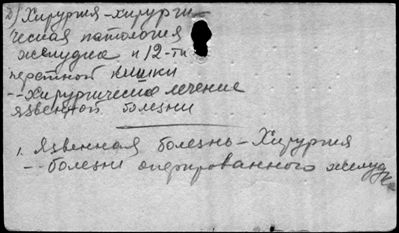 2) Хирургия-хирурги-
ческая патология
желудка и 12-ти
перстной кишки
--хирургическое лечение
язвенной болезни
1. Язвенная болезнь-Хирургия
--болезни оперированного желудка